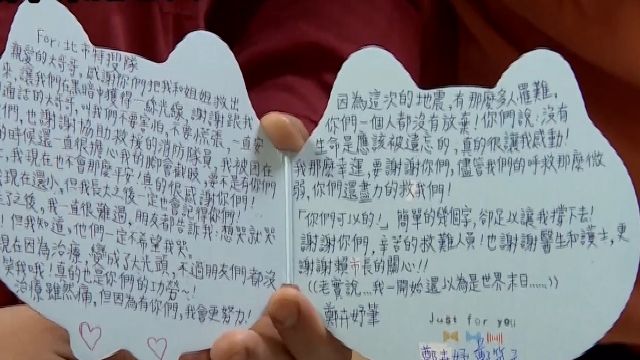 For:北市特搜隊
親愛的大哥哥,感謝你們把我和姐姐救出
來,讓我們在黑暗中獲得一絲光線,謝謝跟我
通話的大哥哥,叫我們不要害怕,不要慌張,一直安
們,也謝謝協助救援的消防隊員,
的時候還一直很擔心我的脚會截肢,要不是有你們
我現在也不會那麼平安!真的很感謝你們!
現在還小,但我長大之後一定也會記得你們!
之後,我一直很難過,朋友都告訴我:想哭就哭
!但我知道,他們一定不希望我哭。
現在因為治療,變成了大光頭,不過朋友們都沒
笑我哦!真的也是你們的功勞~!
治療雖然痛,但因為有你們,我會更努力!
因為這次的地震,有那麼多人罹難,
你們一個人都沒有放棄!你們說:沒有
生命是應該被遺忘的,真的很讓我感動!
我那麼幸運,要謝謝你們,儘管我們的呼救那麼微
弱,你們還盡力的救我們!
「你們可以的!」簡單的幾個字,卻足以讓我撐下去!
謝謝你們,辛苦的救難人員!也謝謝醫生和護士,更
謝謝賴市長的關心!!
((老實說...我一開始還以為是世界末日......))
鄭卉妤筆
Just for you
鄭卉妤